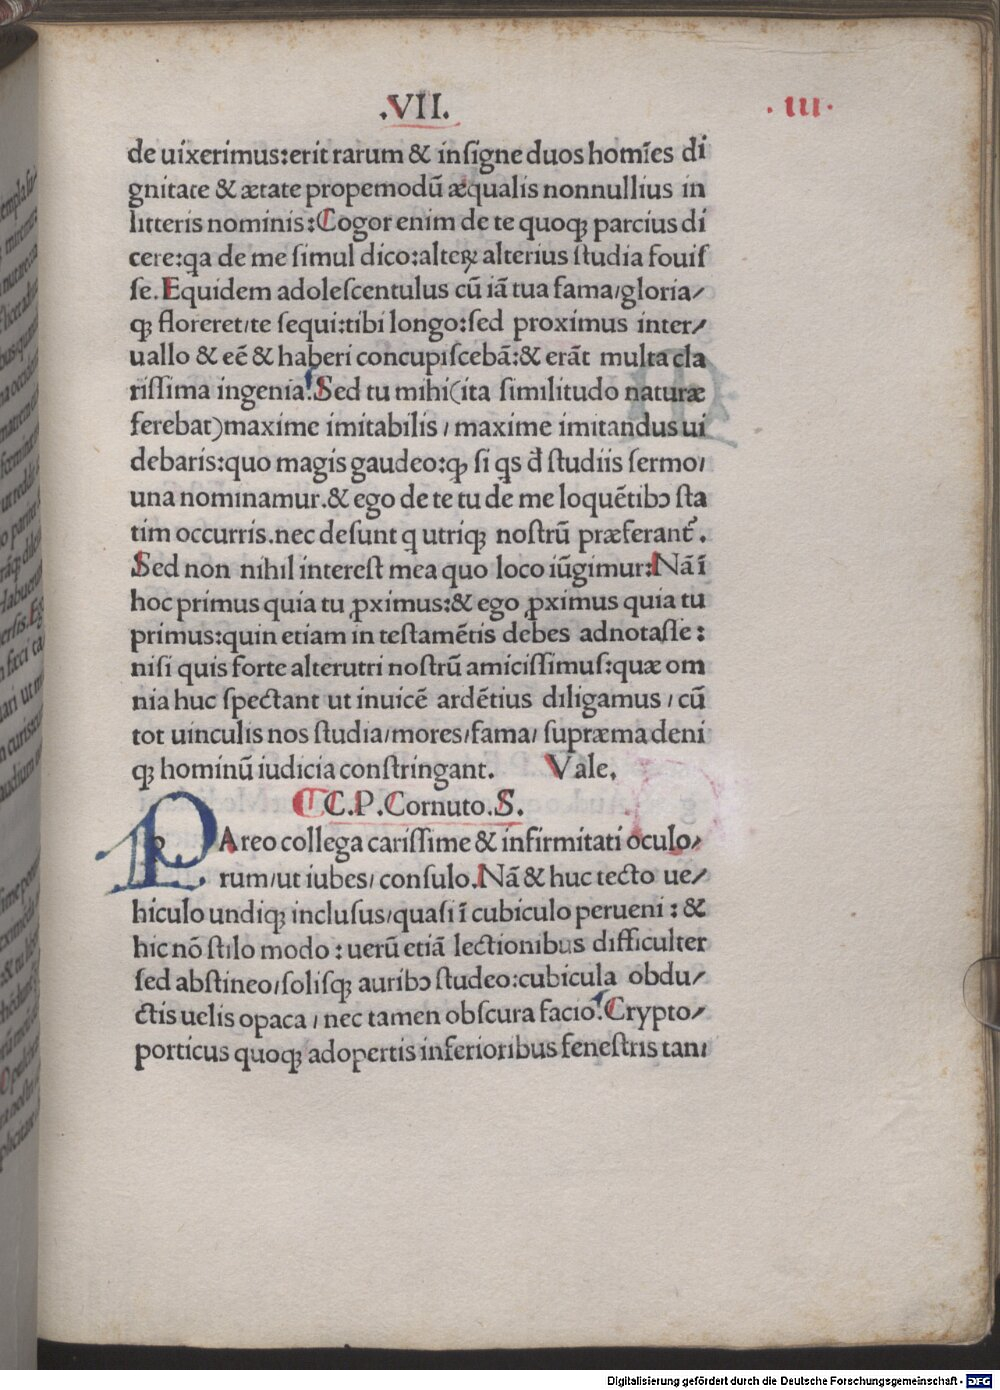 .VII.
· III ·
de uixerimus:erit rarum & inſigne duos homīes di
gnitate & ætate propemodū æqualis nonnullius in
litteris nominis:Cogor enim de te quoqꝫ parcius di
cere:qa de me ſimul dico:alteꝝ alterius ſtudia fouiſ
ſe.Equidem adoleſcentulus cū iā tua fama/gloria/
qꝫ floreret/te ſequi:tibi longo:ſed proximus inter/
uallo & eē & haberi concupiſcebā:& erāt multa cla
riſſima ingenia.Sed tu mihi(ita ſimilitudo naturæ
ferebat)maxime imitabilis / maxime imitandus ui
debaris:quo magis gaudeo:qꝫ ſi qs đ ſtudiis ſermo/
una nominamur.& ego de te tu de me loquētibꝰ ſta
tim occurris.nec deſunt q utriqꝫ noſtrū præferant᷑.
Sed non nihil intereſt mea quo loco iūgimur:Nā ī
hoc primus quia tu ꝓximus:& ego ꝓximus quia tu
primus:quin etiam in teſtamētis debes adnotaſſe:
niſi quis forte alterutri noſtrū amiciſſimuſ:quæ om
nia huc ſpectant ut inuicē ardētius diligamus / cū
tot uinculis nos ſtudia/mores/fama/ ſupræma deni
qꝫ hominū iudicia conſtringant. Vale.
C.P.Cornuto.S.
PAreo collega cariſſime & infirmitati oculo/
rum/ut iubes/ conſulo.Nā & huc tecto ue/
hiculo undiqꝫ incluſus/quaſi ī cubiculo perueni : &
hic nō ſtilo modo : uerū etiā lectionibus difficulter
ſed abſtineo/ſoliſqꝫ auribꝰ ſtudeo:cubicula obdu/
ctis uelis opaca / nec tamen obſcura facio.Crypto/
porticus quoqꝫ adopertis inferioribus feneſtris tan/
Digitalisierung gefördert durch die Deutsche Forschungsgemeinschaft - DFG